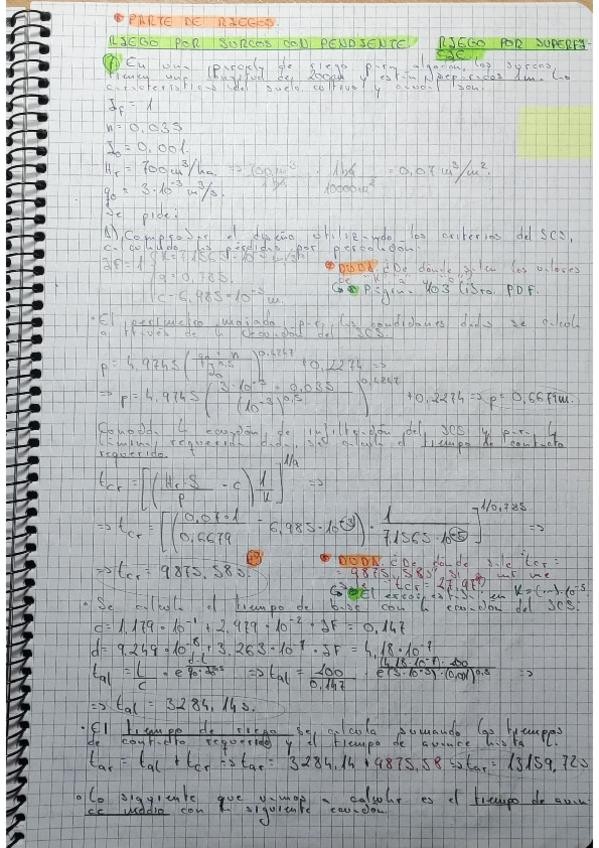 PARTE DE RIEGOS.
RIEGO POR SURCOS CON PENDIENTE. RIEGO POR SUPERFI-
CIE
1) En una parcela de riego para algodón, los surcos
tienen una longitud de 200m y están separados 1m. Las
características del suelo, cultivo y caudal son:
IF = 1
n = 0,035
I₀ = 0,001.
Hr = 700 m³/ha. => 700 m³/1 ha · 1 ha/10000 m² = 0,07 m³/m².
q₀ = 3·10⁻³ m³/s.
Se pide:
A) Comprobar el diseño utilizando los criterios del SCS,
calculando las pérdidas por percolación.
IF = 1
a = 0,785.
c = 6,985·10⁻³ m.
DUDA: ¿De dónde salen los valores
Página 403 libro PDF.
· El perímetro mojado para las condiciones dadas se calcula
a través de la ecuación del SCS.
p = 4,9745 (q₀·n/I₀^0,5)^0,4247 + 0,2274 =>
=> p = 4,9745 (3·10⁻³ · 0,035/(10⁻³)^0,5)^0,4247 + 0,2274 => p = 0,6679 m.
Conocida la ecuación de infiltración del SCS y para la
lámina requerida dada, se calcula el tiempo de contacto
requerido.
tcr = [(Hr·S/p - c) 1/K]^1/a =>
=> tcr = [(0,07·1/0,6679 - 6,985·10⁻³) · 1/7,1565·10⁻⁵]^1/0,785 =>
=> tcr = 9875,58 s.
DUDA: ¿De dónde sale tcr =
= 9875,58 s, si a mí me
· Se calcula el tiempo de base con la ecuación del SCS:
c = 1,179·10⁻¹ + 2,979·10⁻² · IF = 0,147
d = 9,249·10⁻⁸ + 3,263·10⁻⁷ · IF = 4,18·10⁻⁷
tal = L/c · e^(d·L/q₀·I₀^0,5) => tal = 200/0,147 · e^(4,18·10⁻⁷)·200/(3·10⁻³)·(0,001)^0,5 =>
=> tal = 3284,14 s.
· El tiempo de riego se calcula sumando los tiempos
de contacto requerido y el tiempo de avance hasta L.
tar = tal + tcr => tar = 3284,14 + 9875,58 => tar = 13159,72 s
· Lo siguiente que vamos a calcular es el tiempo de avan-
ce medio con la siguiente ecuación